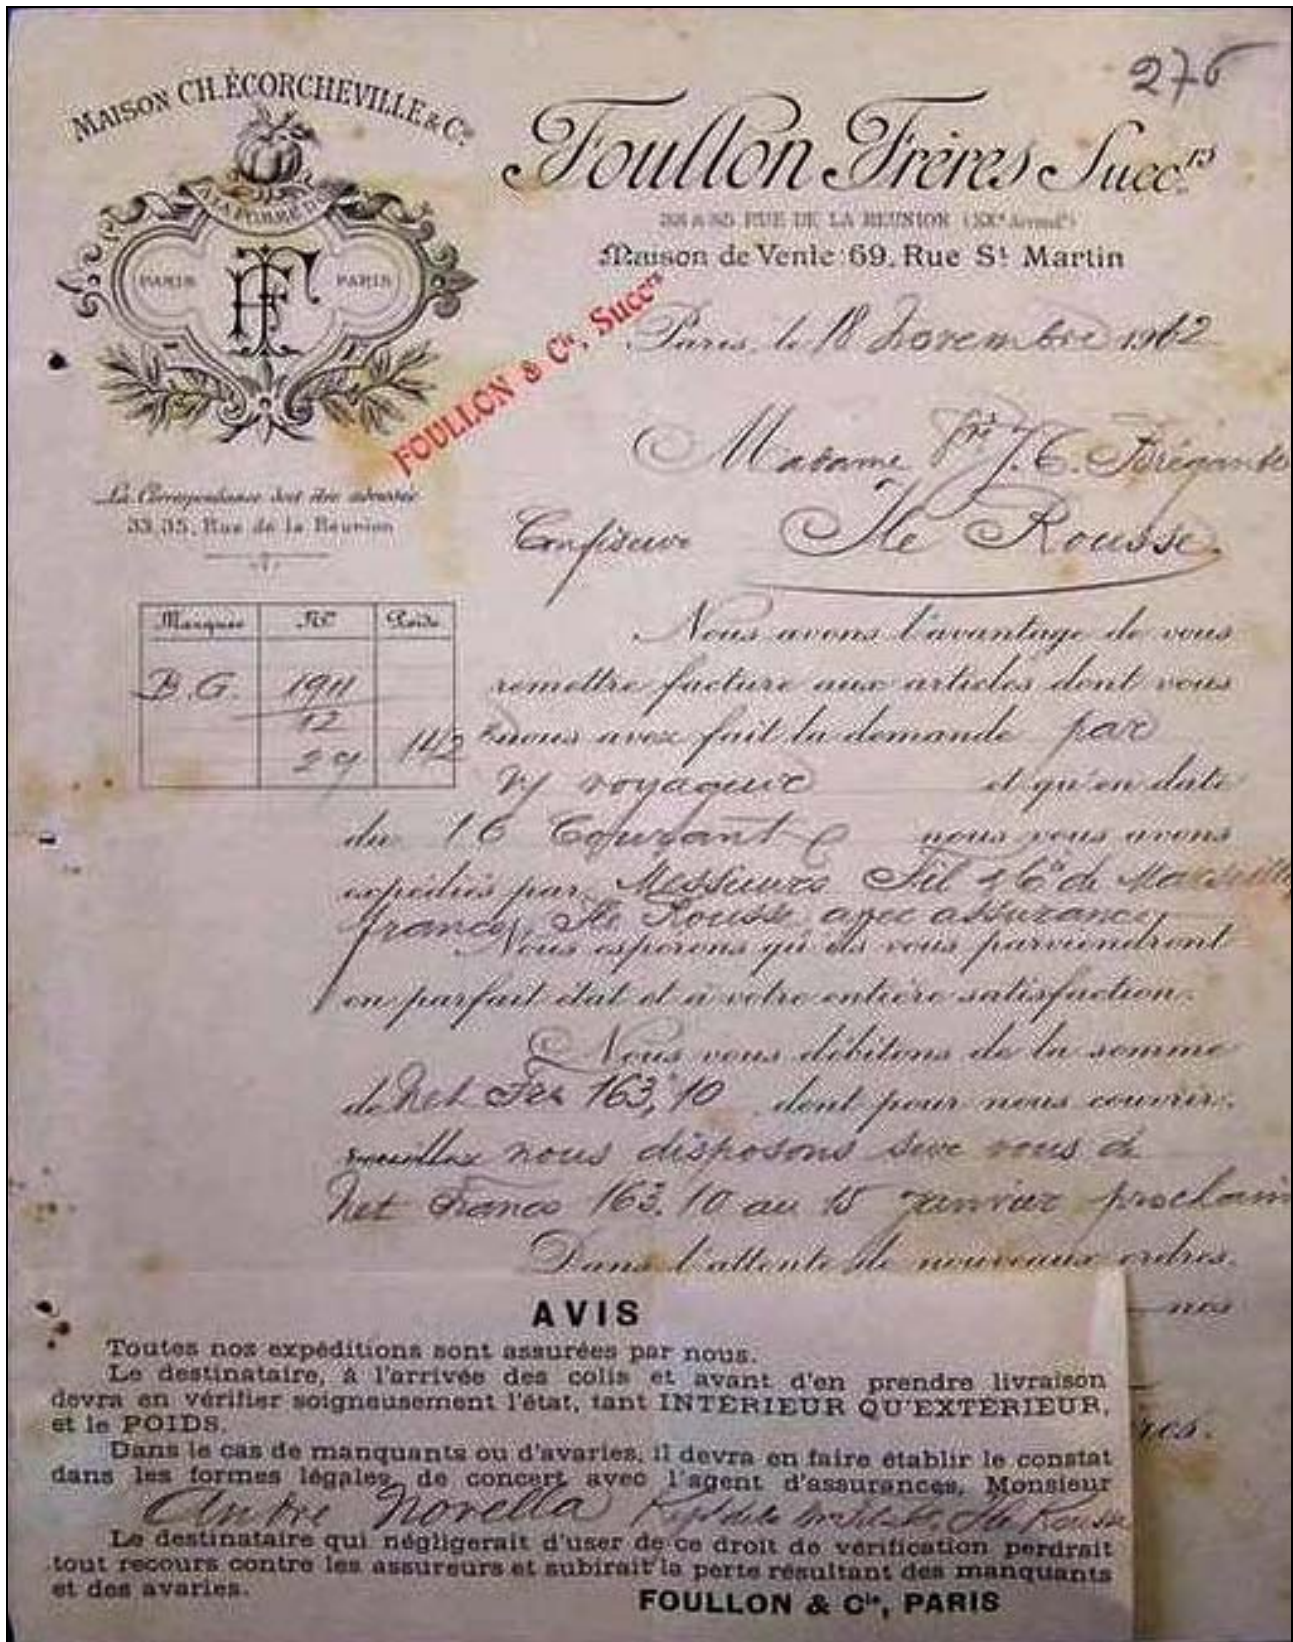 276
MAISON CH. ÉCORCHEVILLE & Cie
Foullon Frères Succrs
33 & 35 RUE DE LA REUNION (XXe Arrondt)
Maison de Vente: 69, Rue St Martin
A LA POMME D'OR
PARIS FF PARIS
FOULLON & Cie, Succrs
Paris, le 18 Novembre 1912
Madame J. C. Brégante
Confiseur Ile Rousse
La Correspondance doit être adressée
33, 35, Rue de la Reunion
Marques No Poids
B. G. 1911
12
29 142 k
Nous avons l'avantage de vous
remettre facture aux articles dont vous
nous avez fait la demande par
voyageur et qu'en date
du 16 Courant nous vous avons
expédiés par Messieurs Fil & Cie de Marseille
franco Ile Rousse, avec assurance,
Nous espérons qu'ils vous parviendront
en parfait état et à votre entière satisfaction.
Nous vous débitons de la somme
de Net Frs 163,10 dont pour nous couvrir,
veuillez nous disposons sur vous de
Net Francs 163.10 au 15 Janvier prochain
Dans l'attente de nouveaux ordres,
nos
res.
AVIS
Toutes nos expéditions sont assurées par nous.
Le destinataire, à l'arrivée des colis et avant d'en prendre livraison
devra en vérifier soigneusement l'état, tant INTERIEUR QU'EXTERIEUR,
et le POIDS.
Dans le cas de manquants ou d'avaries, il devra en faire établir le constat
dans les formes légales, de concert avec l'agent d'assurances, Monsieur
André Novella Ile Rousse
Le destinataire qui négligerait d'user de ce droit de vérification perdrait
tout recours contre les assureurs et subirait la perte résultant des manquants
et des avaries.
FOULLON & Cie, PARIS